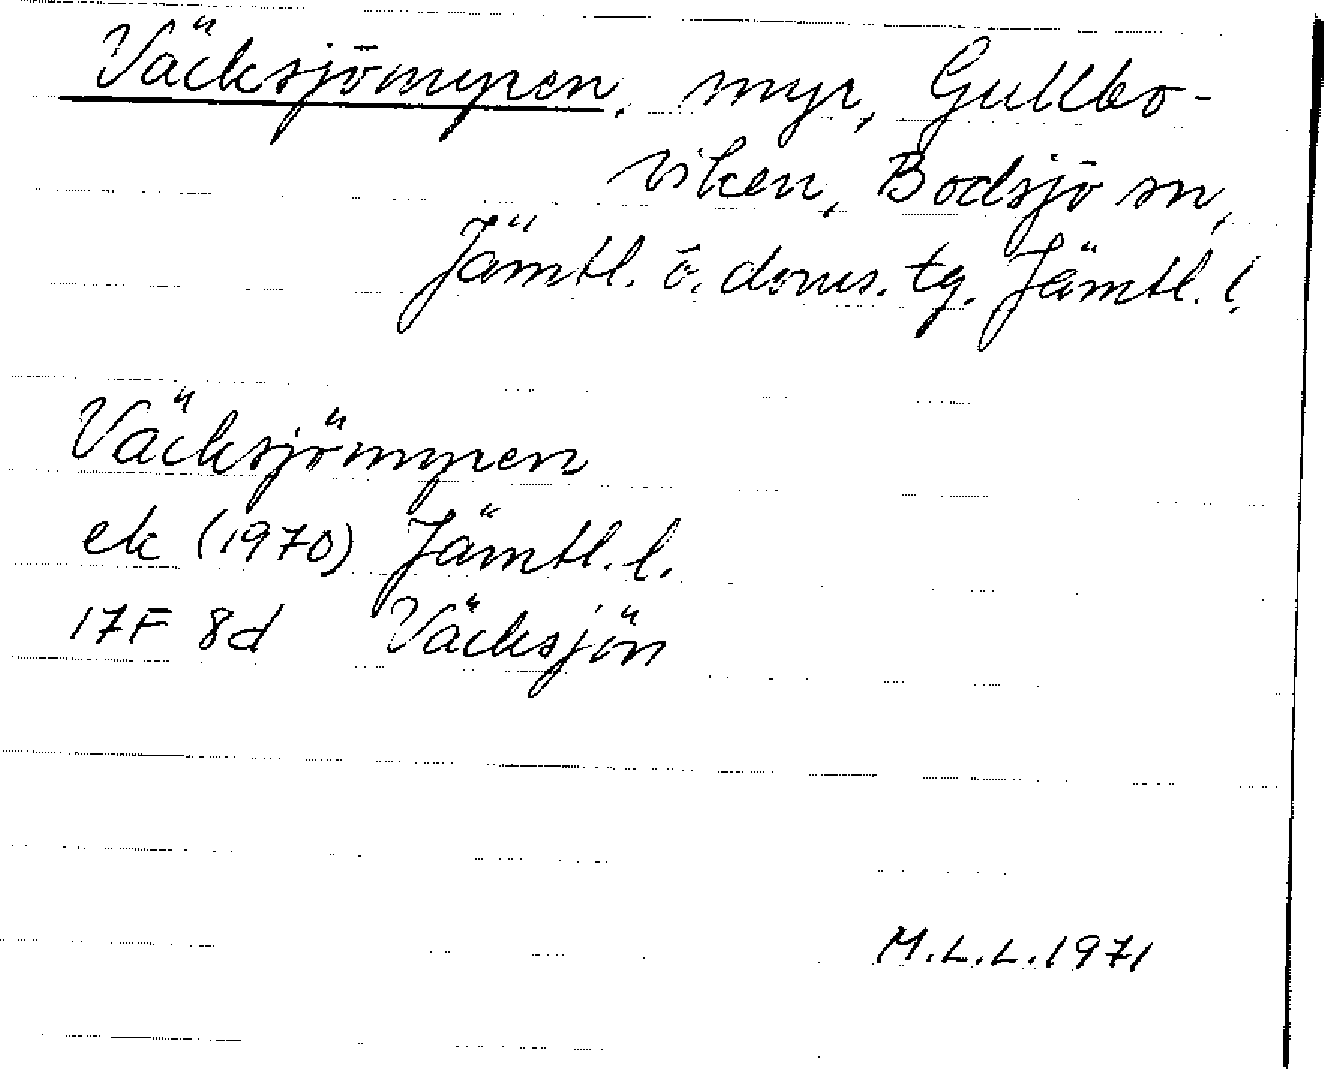 Väcksjömyren, myr, Gullbo-
viken, Bodsjö sn,
Jämtl. ö. doms. tg. Jämtl. l.
Väcksjömyren
ek (1970) Jämtl. l.
17F 8d Väcksjön
M.L.L. 1971